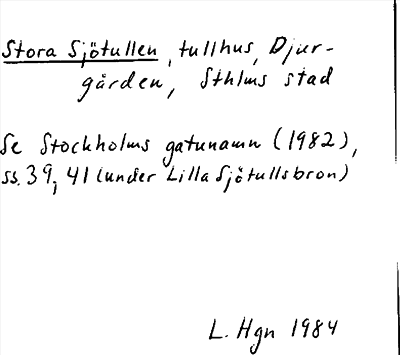 Stora Sjötullen, tullhus, Djur-
gården, Sthlms stad
Se Stockholms gatunamn (1982),
ss. 39, 41 (under Lilla Sjötullsbron)
L. Hgn 1984